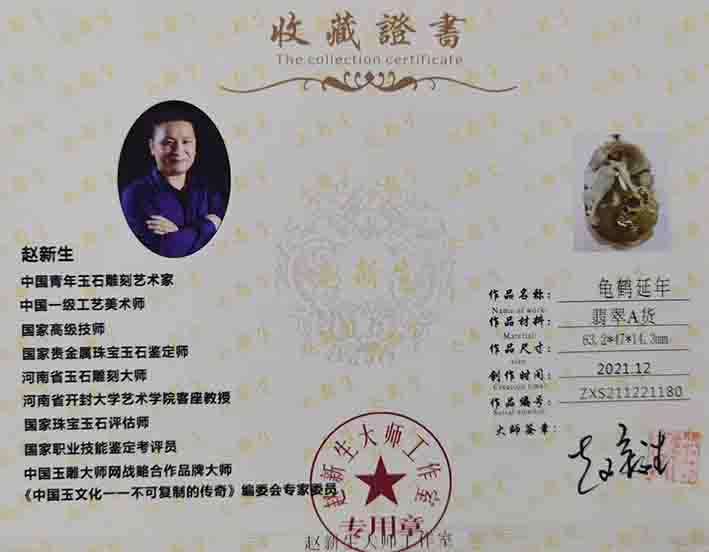 收藏證書
The collection certificate
赵新生
中国青年玉石雕刻艺术家
中国一级工艺美术师
国家高级技师
国家贵金属珠宝玉石鉴定师
河南省玉石雕刻大师
河南省开封大学艺术学院客座教授
国家珠宝玉石评估师
国家职业技能鉴定考评员
中国玉雕大师网战略合作品牌大师
《中国玉文化一一不可复制的传奇》编委会专家委员
赵新生
作品名称: 龟鹤延年
Name of work:
作品材料: 翡翠A货
Material:
作品尺寸: 63.2*47*14.3mm
size:
创作时间: 2021.12
Creation time:
作品编号: ZXS211221180
Serial number:
大师签章: 赵新生
赵新生大师工作室
专用章
赵新生大师工作室